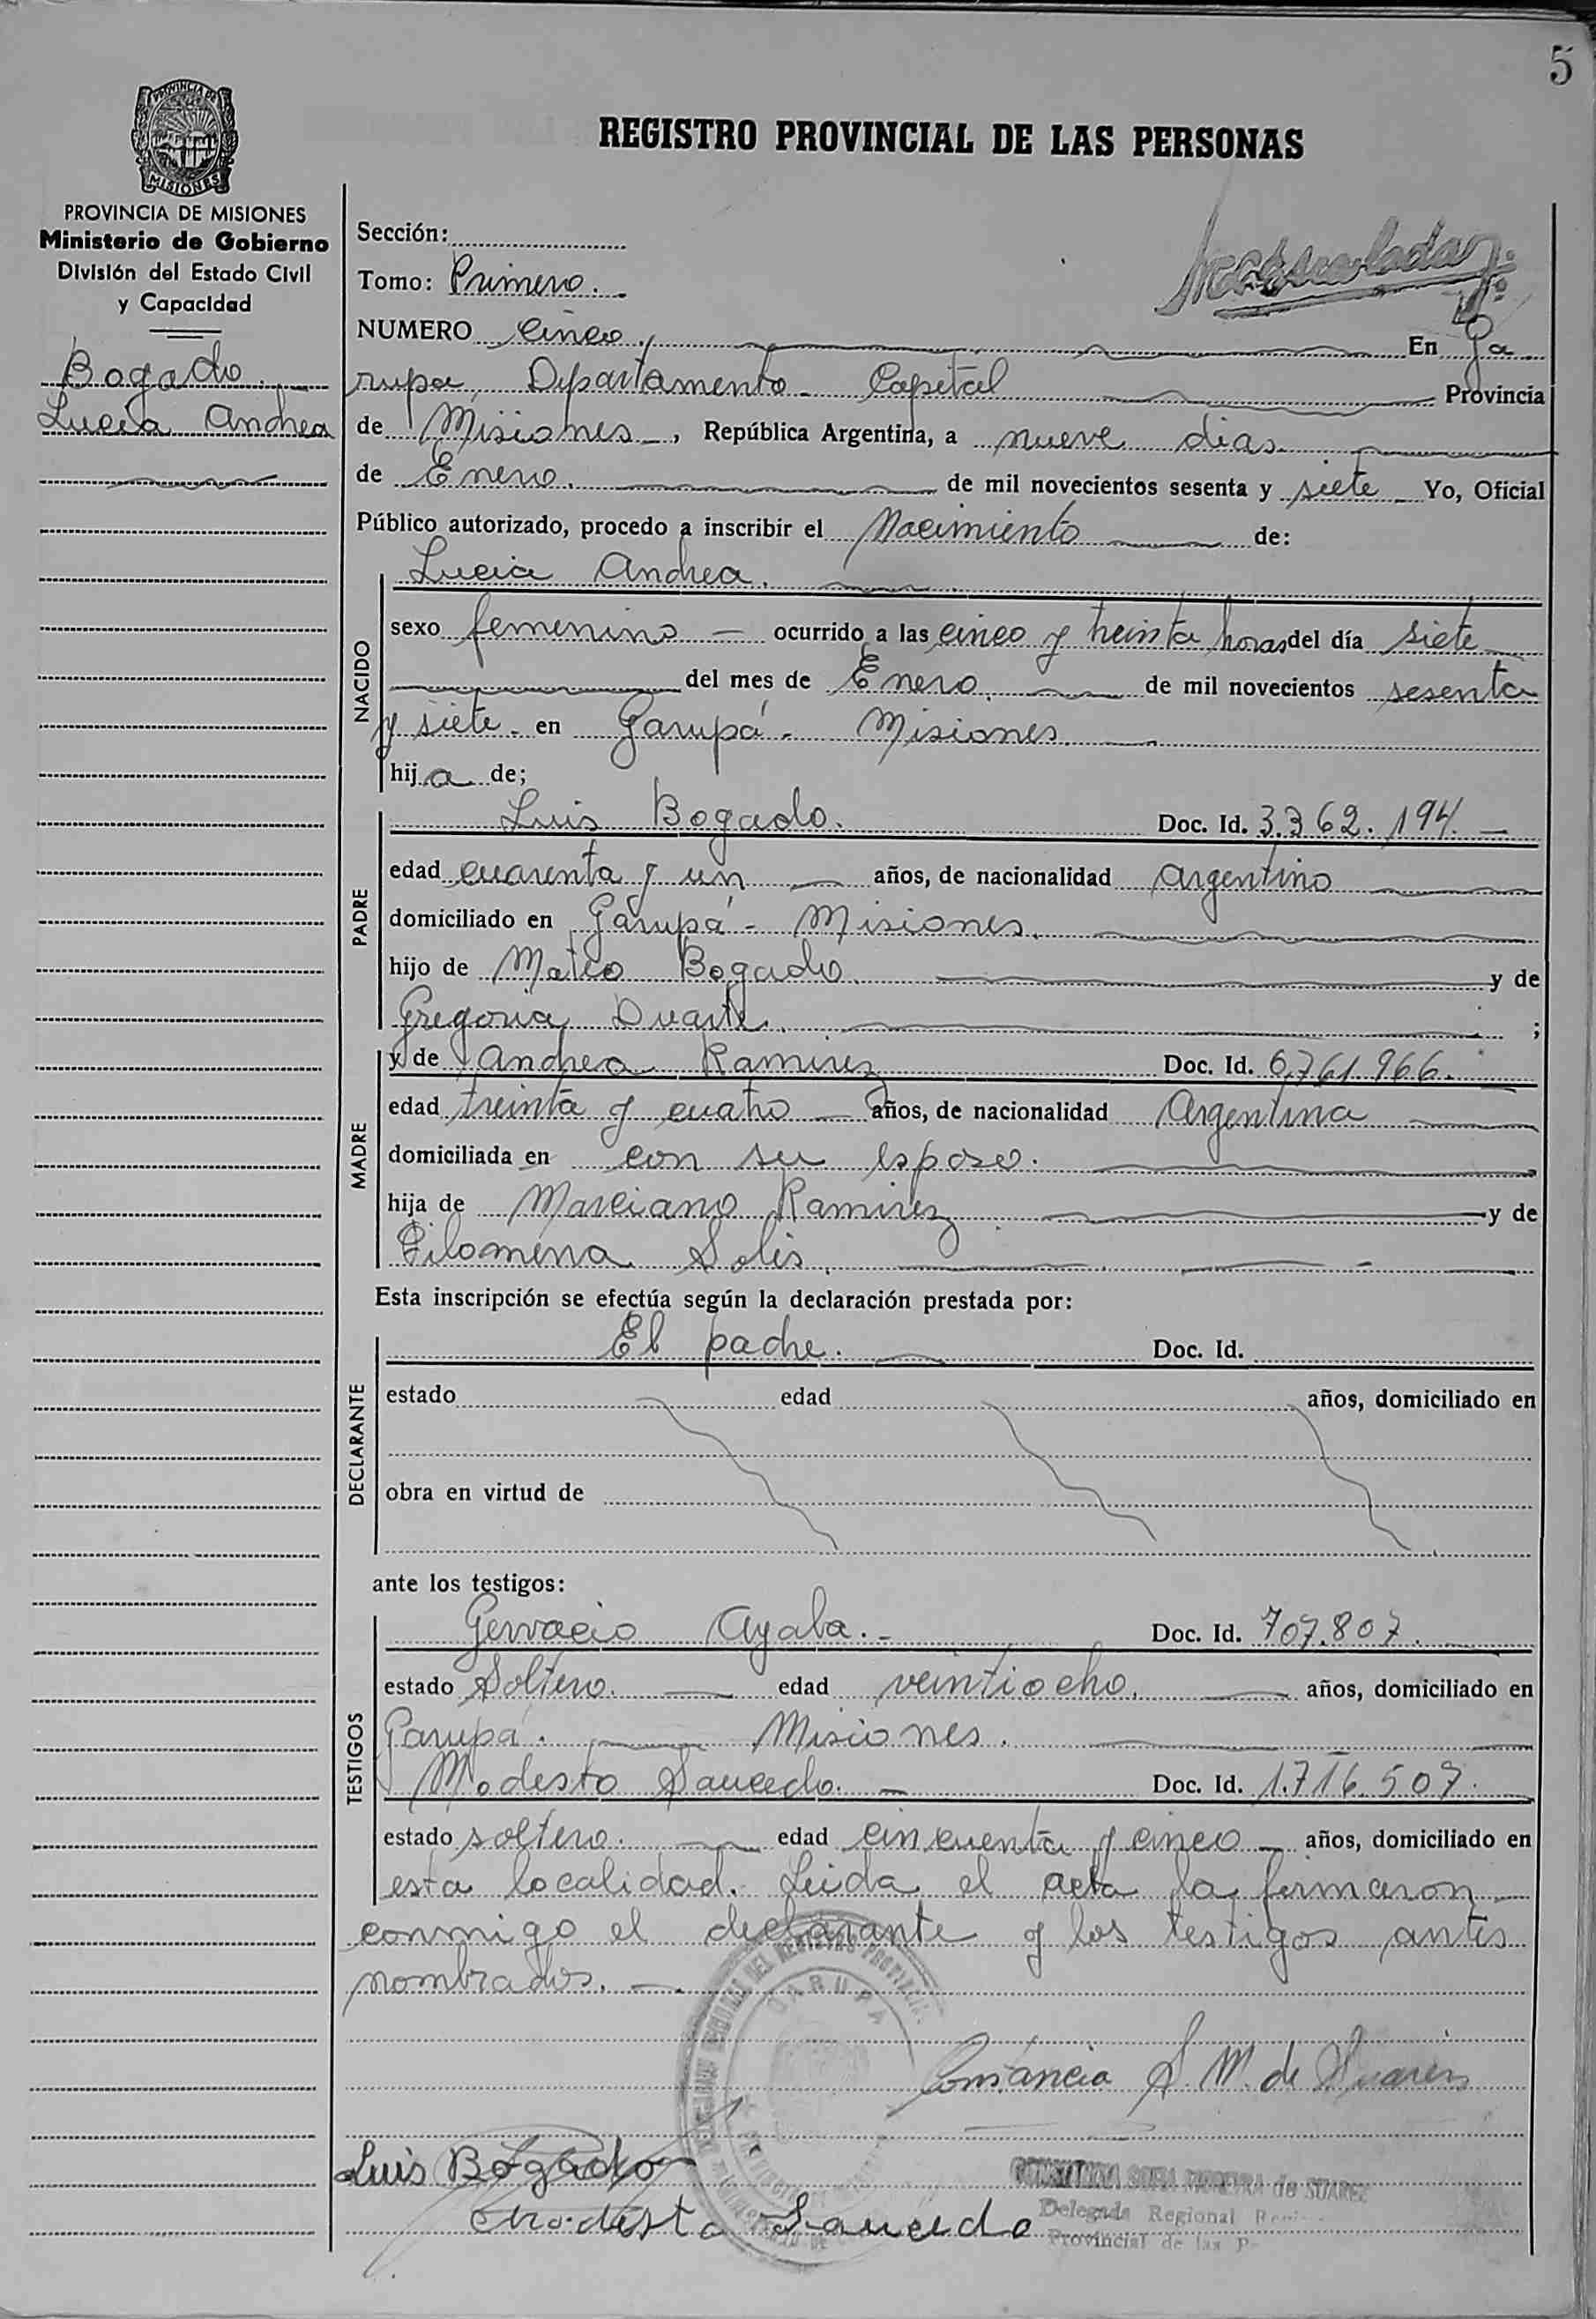 5
PROVINCIA DE
MISIONES
REGISTRO PROVINCIAL DE LAS PERSONAS
PROVINCIA DE MISIONES
Ministerio de Gobierno
División del Estado Civil
y Capacidad
Bogado
Lucia Andrea
Sección:
Tomo: Primero.
NUMERO cinco, En Ga
rupa Departamento Capital Provincia
de Misiones, República Argentina, a nueve dias
de Enero. de mil novecientos sesenta y siete Yo, Oficial
Público autorizado, procedo a inscribir el Nacimiento de:
NACIDO
Lucia Andrea.
sexo femenino - ocurrido a las cinco y treinta horas del día siete
del mes de Enero de mil novecientos sesenta
y siete - en Garupá - Misiones
hija de;
PADRE
Luis Bogado. Doc. Id. 3.362.194. -
edad cuarenta y un años, de nacionalidad argentino
domiciliado en Garupá - Misiones.
hijo de Mateo Bogado y de
Gregoria Duarte. ;
MADRE
y de Andrea Ramirez Doc. Id. 6.761.966.
edad treinta y cuatro años, de nacionalidad Argentina
domiciliada en con su esposo.
hija de Marciano Ramirez y de
Filomena Solis.
Esta inscripción se efectúa según la declaración prestada por:
DECLARANTE
El padre. Doc. Id.
estado edad años, domiciliado en
obra en virtud de
ante los testigos:
TESTIGOS
Gervacio Ayala. - Doc. Id. 707.807.
estado Soltero. edad veintiocho. años, domiciliado en
Garupá. Misiones.
Modesto Saucedo. - Doc. Id. 1.716.507.
estado soltero. edad cincuenta y cinco años, domiciliado en
esta localidad. Leida el acta la firmaron
conmigo el declarante y los testigos antes
nombrados. -
GARUPA
Constancia S. M. de Suarez
Luis Bogado
Modesto Saucedo
CONSTANCIA SOFIA MOREYRA de SUAREZ
Delegada Regional
Provincial de las P